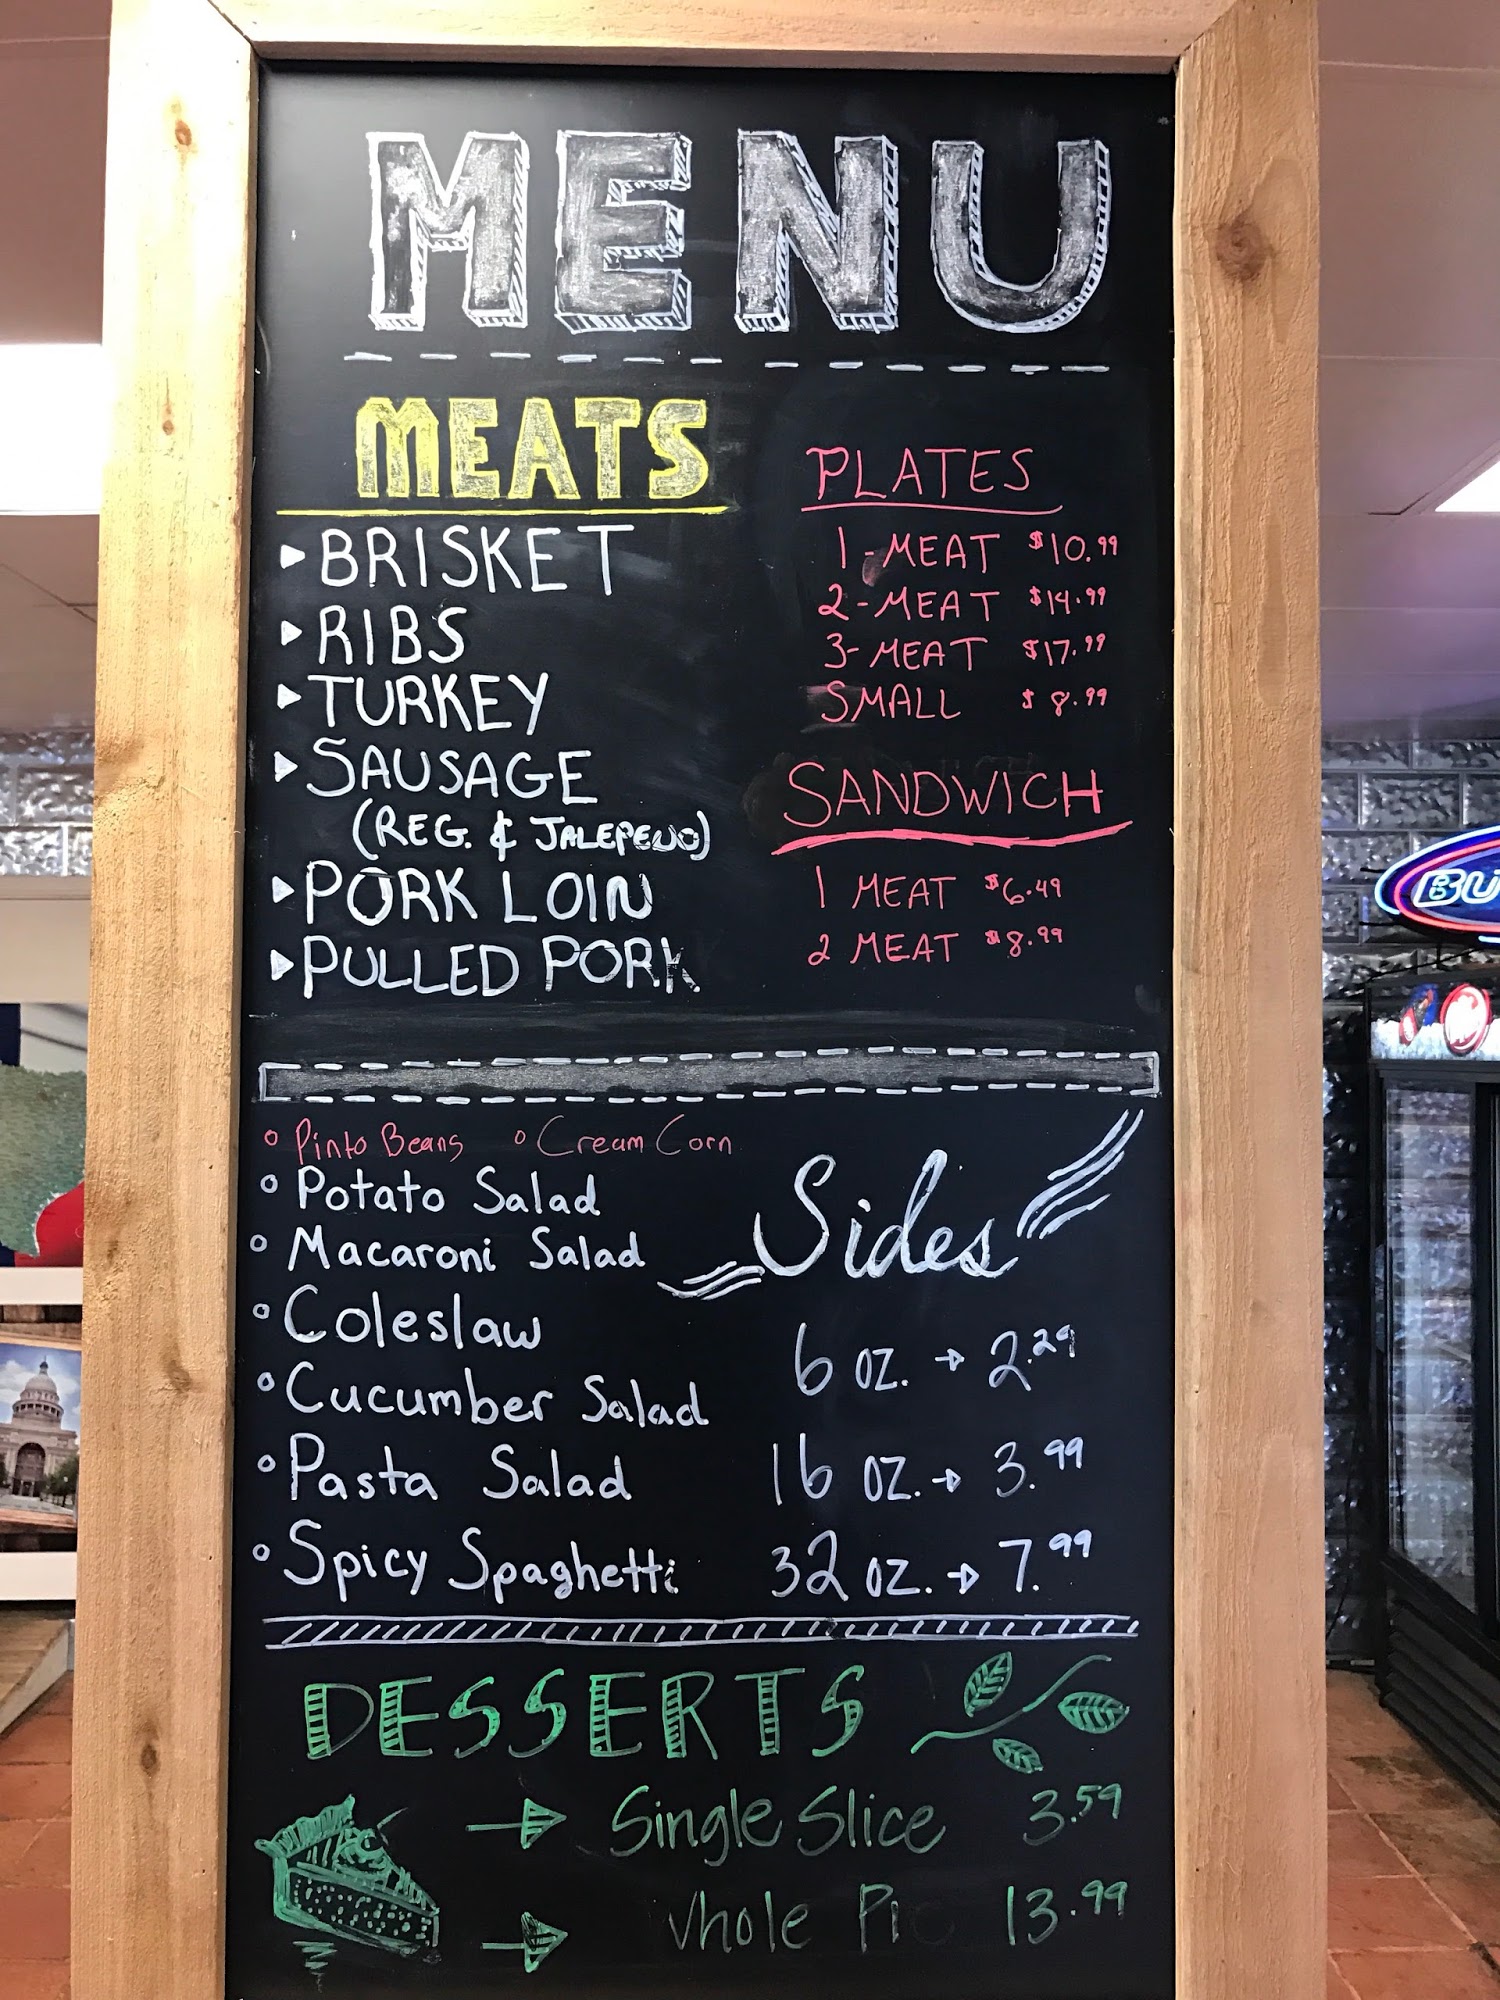 MENU
MEATS
BRISKET
RIBS
TURKEY
SAUSAGE
(REG. & JALEPENO)
PORK LOIN
PULLED PORK
PLATES
1-MEAT $10.99
2-MEAT $14.99
3-MEAT $17.99
SMALL $8.99
SANDWICH
1 MEAT $6.49
2 MEAT $8.99
Pinto Beans Cream Corn
Potato Salad
Macaroni Salad
Coleslaw
Cucumber Salad
Pasta Salad
Spicy Spaghetti
Sides
6 oz. → 2.29
16 oz. → 3.99
32 oz. → 7.99
DESSERTS
→ Single Slice 3.59
→ Whole Pi 13.99
BU